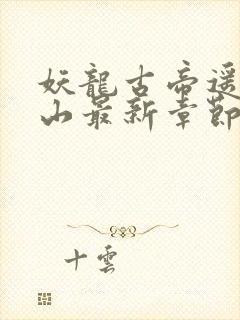 妖龍古帝遥
山最新章節
十雲